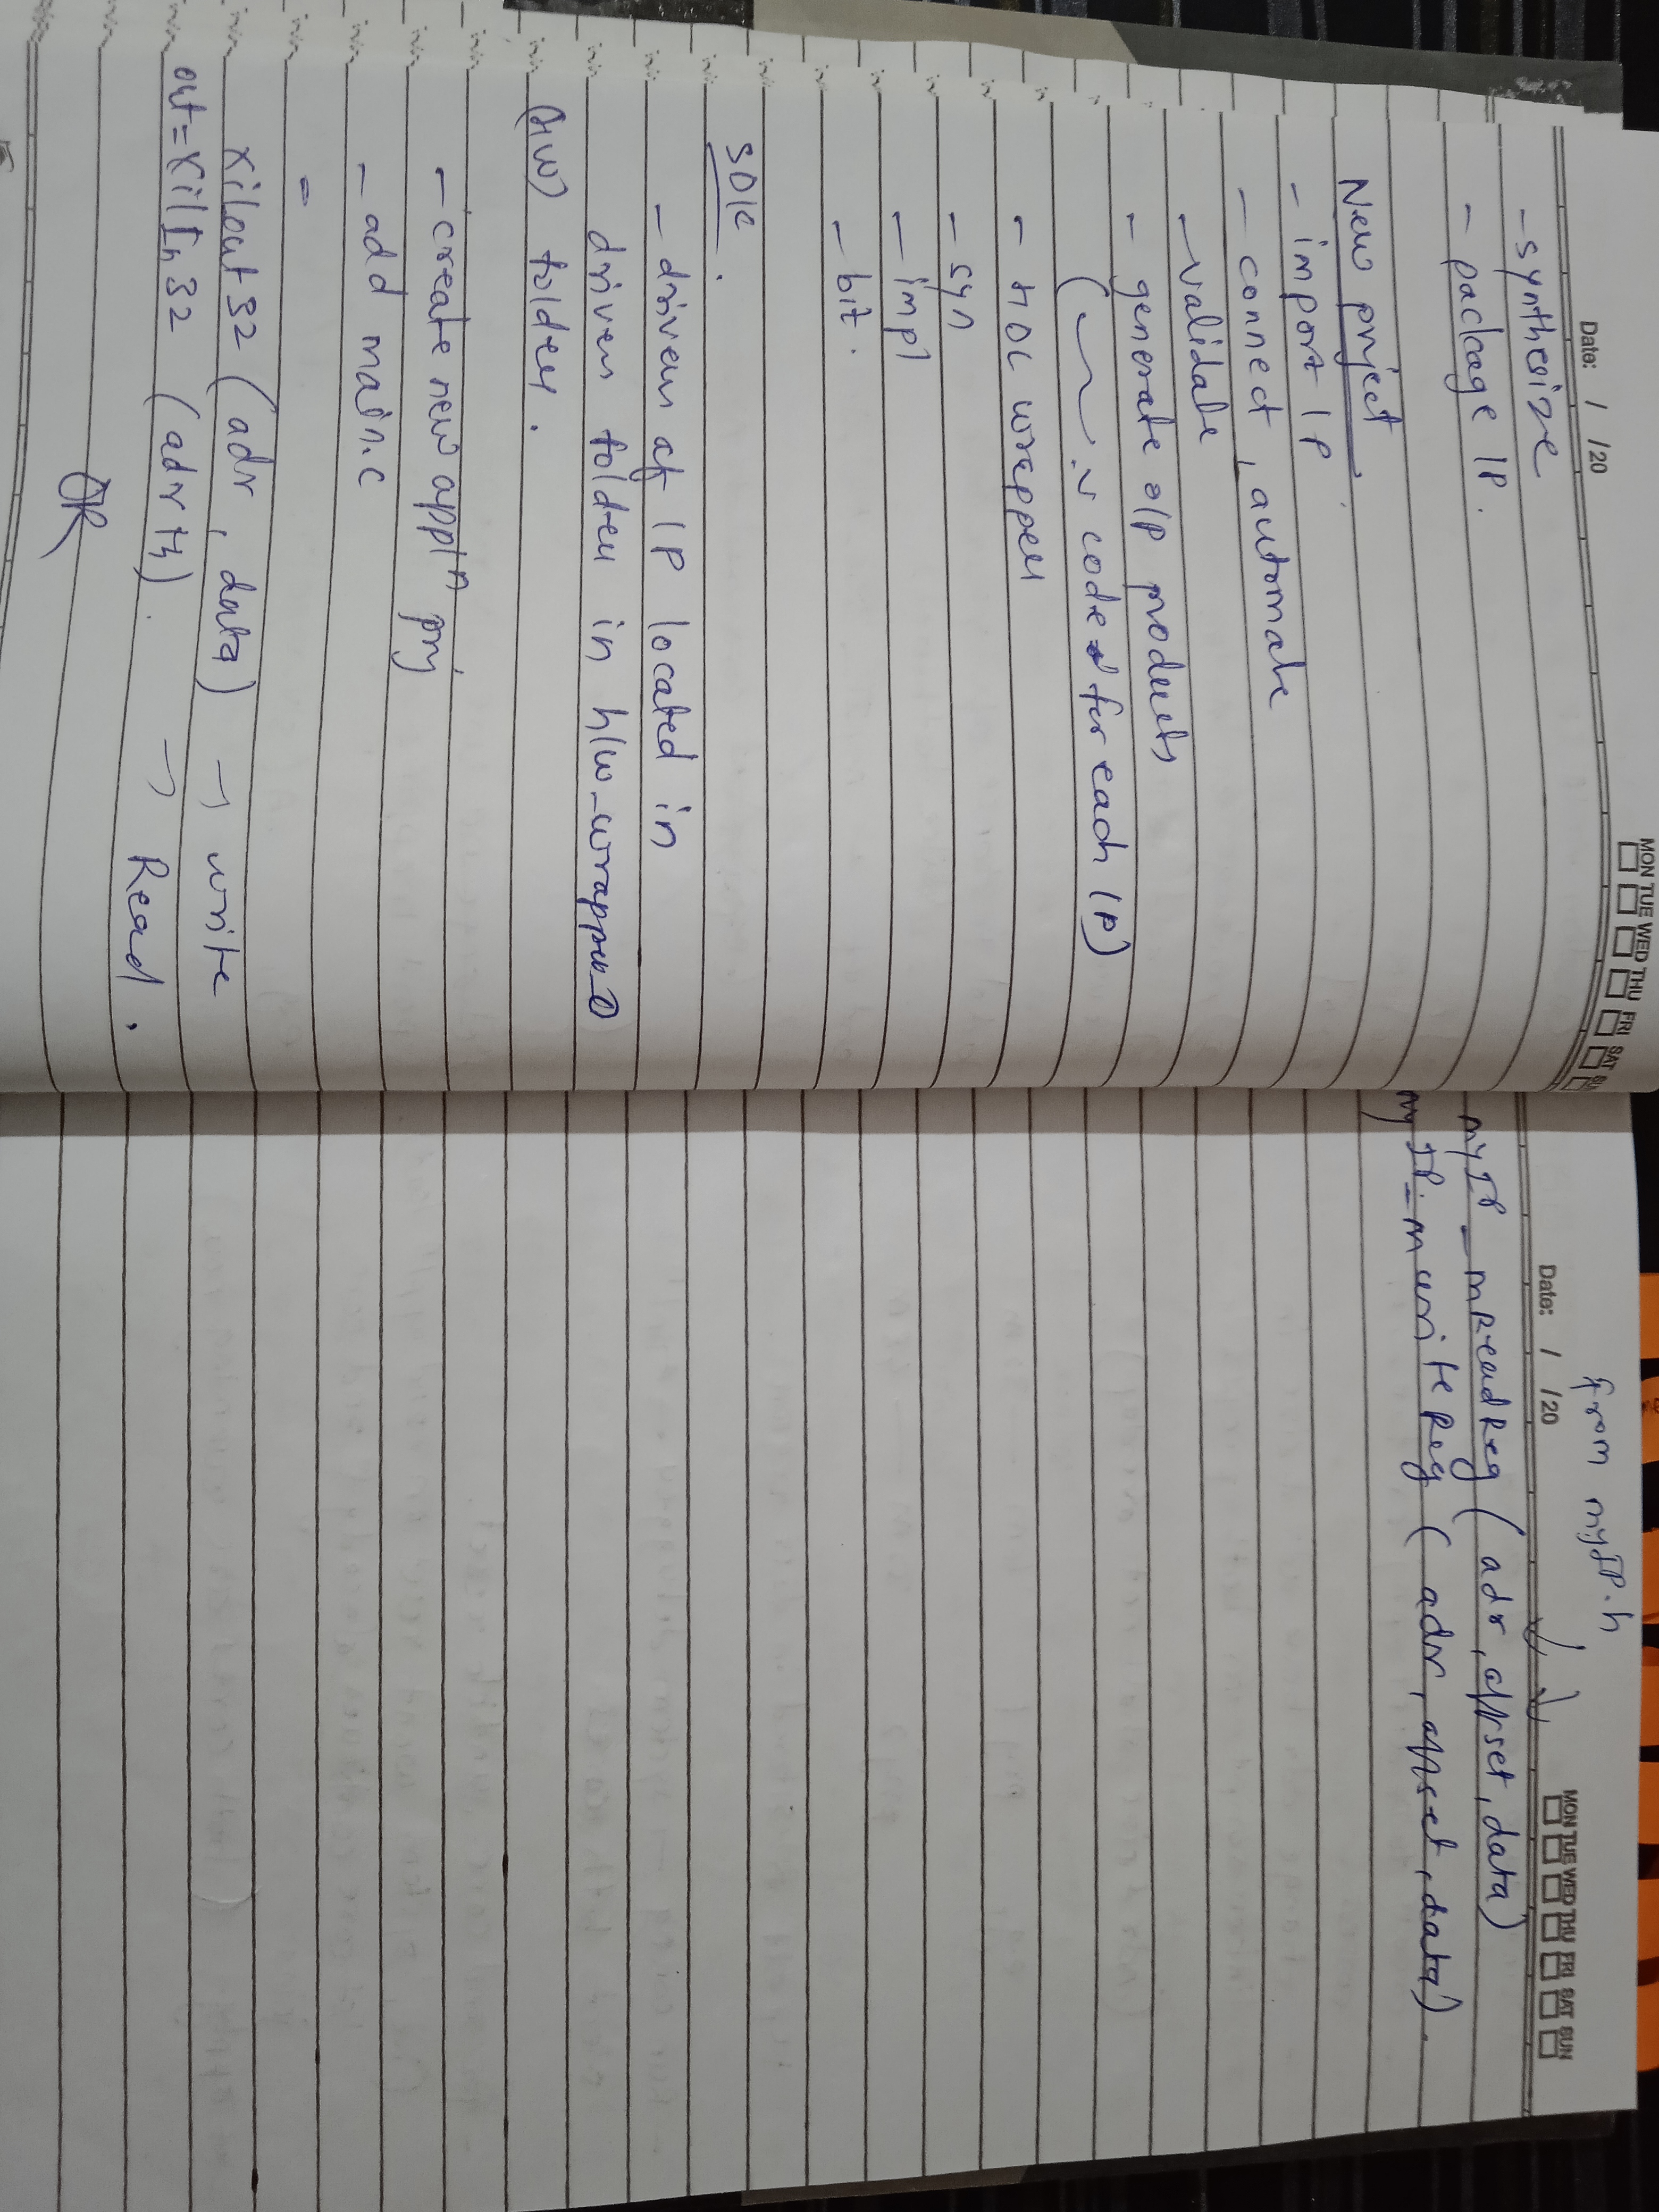 Date: / /20
MON TUE WED THU FRI SAT
- synthesize
- package IP.
New project.
- import IP
- connect, automate
- validate
- generate o/p products
( .v code for each IP)
- HDL wrapper
- syn
- impl
- bit.
SDK.
- drivers of IP located in
drivers folder in h/w_wrapper_0
(HW) folder.
- create new appln prj
- add main.c
=
Xilout32 (adr, data) → write
out = XilIn32 (adr+4). → Read.
OR
from myIP.h
Date: / /20
MON TUE WED THU FRI SAT SUN
myIP_mReadReg (adr, offset, data)
myIP_mwriteReg (adr, offset, data).